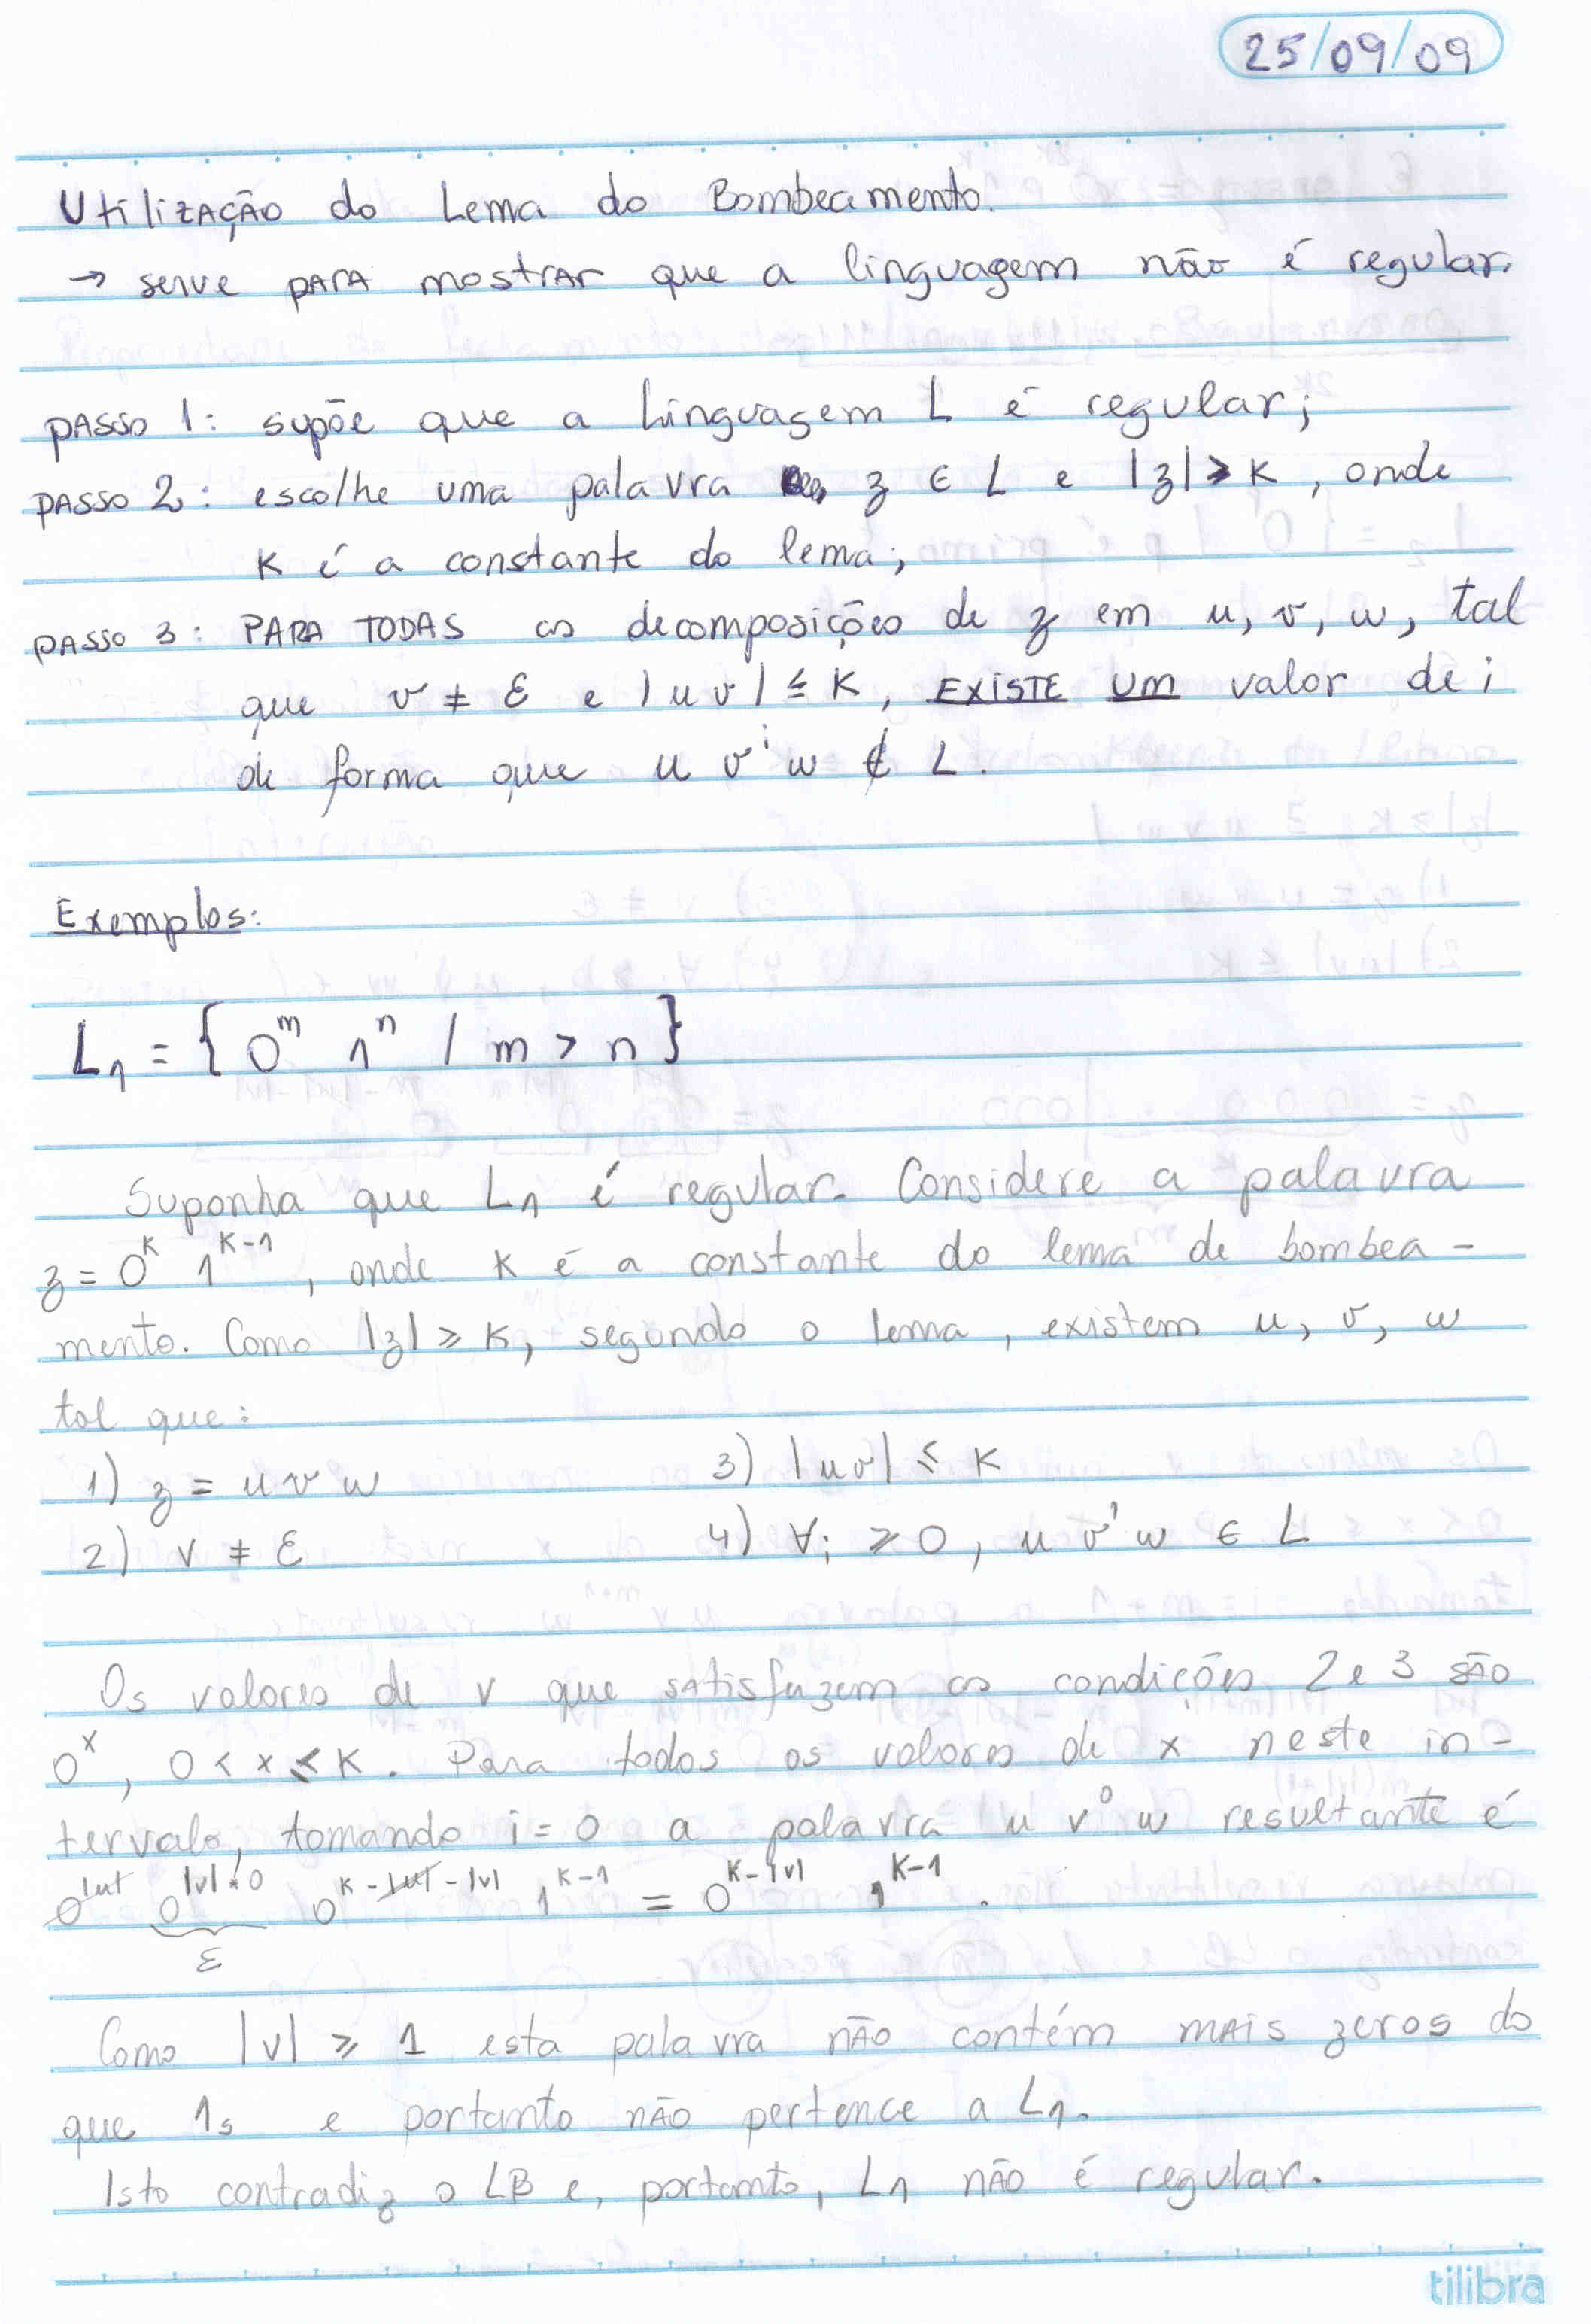 25/09/09
Utilização do Lema do Bombeamento.
→ serve para mostrar que a linguagem não é regular.
PASSO 1: supõe que a linguagem L é regular;
PASSO 2: escolhe uma palavra z ∈ L e |z| ≥ K, onde
K é a constante do lema;
PASSO 3: PARA TODAS as decomposições de z em u, v, w, tal
que v ≠ ε e |uv| ≤ K, EXISTE UM valor de i
de forma que u vⁱ w ∉ L.
Exemplos:
L₁ = { 0ᵐ 1ⁿ / m > n }
Suponha que L₁ é regular. Considere a palavra
z = 0ᴷ 1ᴷ⁻¹, onde K é a constante do lema de bombea-
mento. Como |z| ≥ K, segundo o lema, existem u, v, w
tal que:
1) z = u v w 3) |uv| ≤ K
2) v ≠ ε 4) ∀i ≥ 0, u vⁱ w ∈ L
Os valores de v que satisfazem as condições 2 e 3 são
0ˣ, 0 < x ≤ K. Para todos os valores de x neste in-
tervalo, tomando i = 0 a palavra u v⁰ w resultante é
0^|u| 0^|v|*0 0^K-|u|-|v| 1^K-1 = 0^K-|v| 1^K-1.
ε
Como |v| ≥ 1 esta palavra não contém mais zeros do
que 1s e portanto não pertence a L₁.
Isto contradiz o LB e, portanto, L₁ não é regular.
tilibra